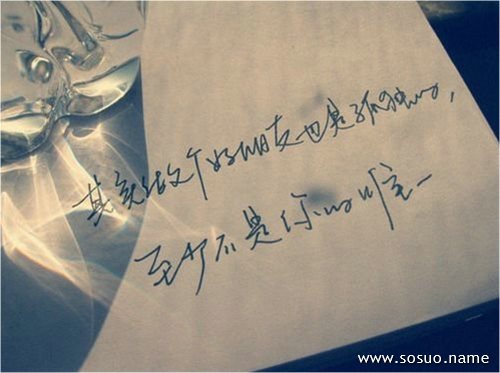 其实做个好朋友也是孤独的，
至少不是你的唯一
www.sosuo.name